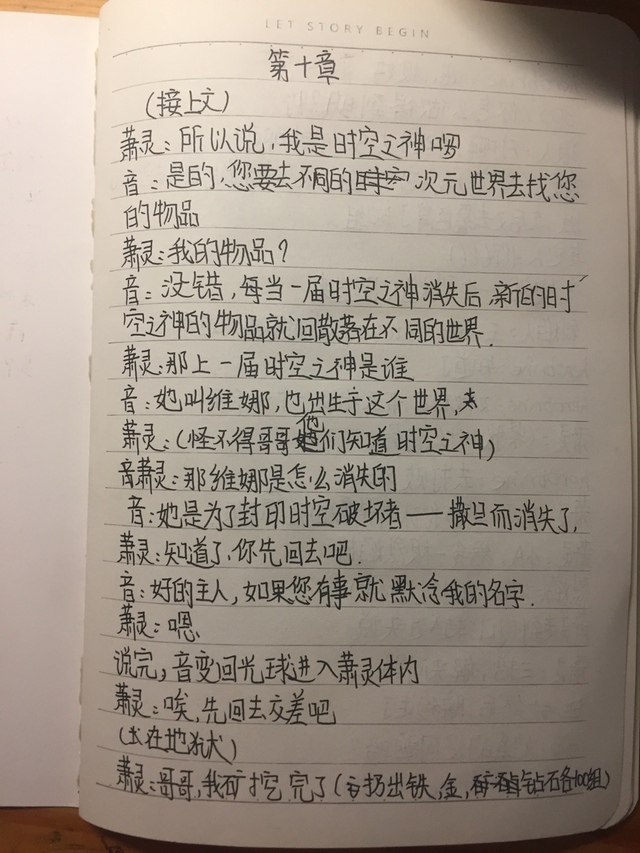 LET STORY BEGIN
第十章
(接上文)
萧灵:所以说,我是时空之神啰
音:是的,您要去不同的次元世界去找您
的物品
萧灵:我的物品?
音:没错,每当一届时空之神消失后,新的时
空之神的物品就回散落在不同的世界.
萧灵:那上一届时空之神是谁
音:她叫维娜,也出生于这个世界,
萧灵:(怪不得哥哥他们知道时空之神)
萧灵:那维娜是怎么消失的
音:她是为了封印时空破坏者——撒旦而消失了,
萧灵:知道了,你先回去吧.
音:好的主人,如果您有事就默念我的名字.
萧灵:嗯
说完,音变回光球进入萧灵体内
萧灵:唉,先回去交差吧
(在地狱)
萧灵:哥哥,我矿挖完了(扔出铁,金,钻石各100组)